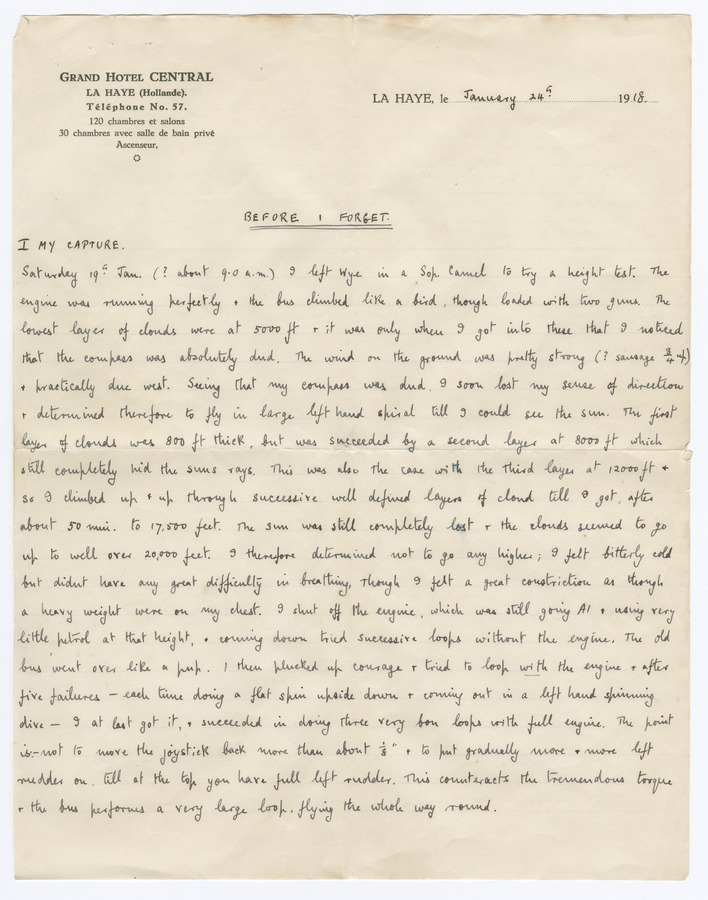 GRAND HOTEL CENTRAL
LA HAYE (Hollande).
Téléphone No. 57.
120 chambres et salons
30 chambres avec salle de bain privé
Ascenseur,
LA HAYE, le January 24th 1918.
BEFORE I FORGET.
I MY CAPTURE.
Saturday 19th Jan. (? about 9.0 a.m.) I left Wye in a Sop. Camel to try a height test. The
engine was running perfectly + the bus climbed like a bird, though loaded with two guns. The
lowest layer of clouds were at 5000 ft + it was only when I got into these that I noticed
that the compass was absolutely dud. The wind on the ground was pretty strong (? sausage 3/4 +)
+ practically due west. Seeing that my compass was dud, I soon lost my sense of direction
+ determined therefore to fly in large left hand spiral till I could see the sun. The first
layer of clouds was 800 ft thick, but was succeeded by a second layer at 8000 ft which
still completely hid the suns rays. This was also the case with the third layer at 12000 ft +
so I climbed up + up through successive well defined layers of cloud till I got, after
about 50 min. to 17,500 feet. The sun was still completely lost + the clouds seemed to go
up to well over 20,000 feet. I therefore determined not to go any higher; I felt bitterly cold
but didnt have any great difficulty in breathing, though I felt a great constriction as though
a heavy weight were on my chest. I shut off the engine, which was still going A1 + using very
little petrol at that height, + coming down tried successive loops without the engine. The old
bus went over like a pup. I then plucked up courage + tried to loop with the engine + after
five failures – each time doing a flat spin upside down + coming out in a left hand spinning
dive – I at last got it, + succeeded in doing three very bon loops with full engine. The point
is:- not to move the joystick back more than about 1/8" + to put gradually more + more left
rudder on, till at the top you have full left rudder. This counteracts the tremendous torque
+ the bus performs a very large loop, flying the whole way round.